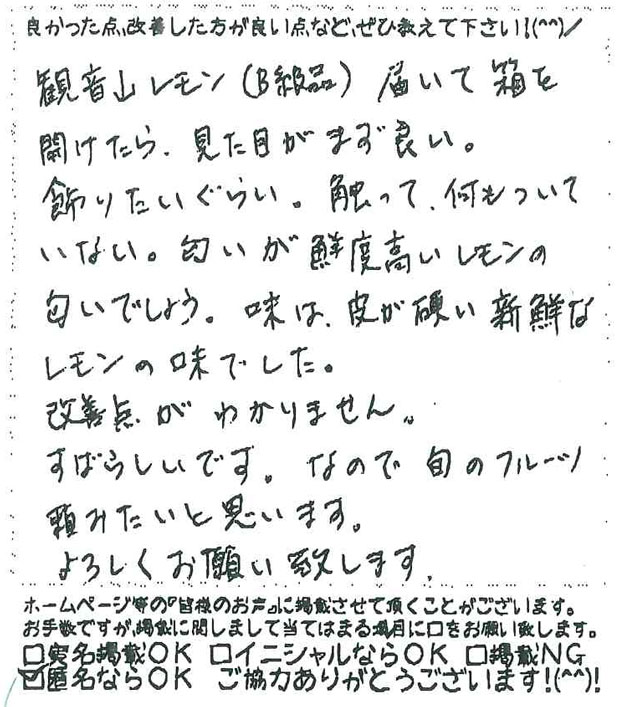 良かった点、改善した方が良い点など、ぜひ教えて下さい!(^^)/
観音山レモン(B級品) 届いて箱を
開けたら、見た目がまず良い。
飾りたいぐらい。触って、何もついて
いない。匂いが鮮度高いレモンの
匂いでしょう。味は、皮が硬い新鮮な
レモンの味でした。
改善点がわかりません。
すばらしいです。なので旬のフルーツ
頼みたいと思います。
よろしくお願い致します。
ホームページ等の『皆様のお声』に掲載させて頂くことがございます。
お手数ですが、掲載に関しまして当てはまる項目に☑をお願い致します。
□実名掲載OK □イニシャルならOK □掲載NG
☑匿名ならOK ご協力ありがとうございます!(^^)!